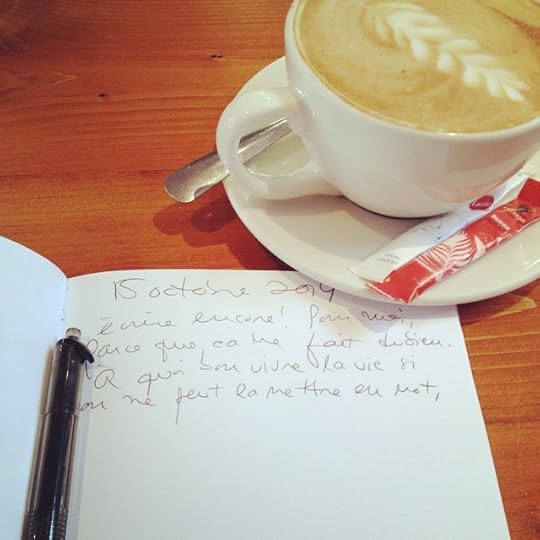 15 octobre 2014
écrire encore! Pour moi,
Parce que ça me fait du bien.
À quoi bon vivre la vie si
on ne peut la mettre en mot,